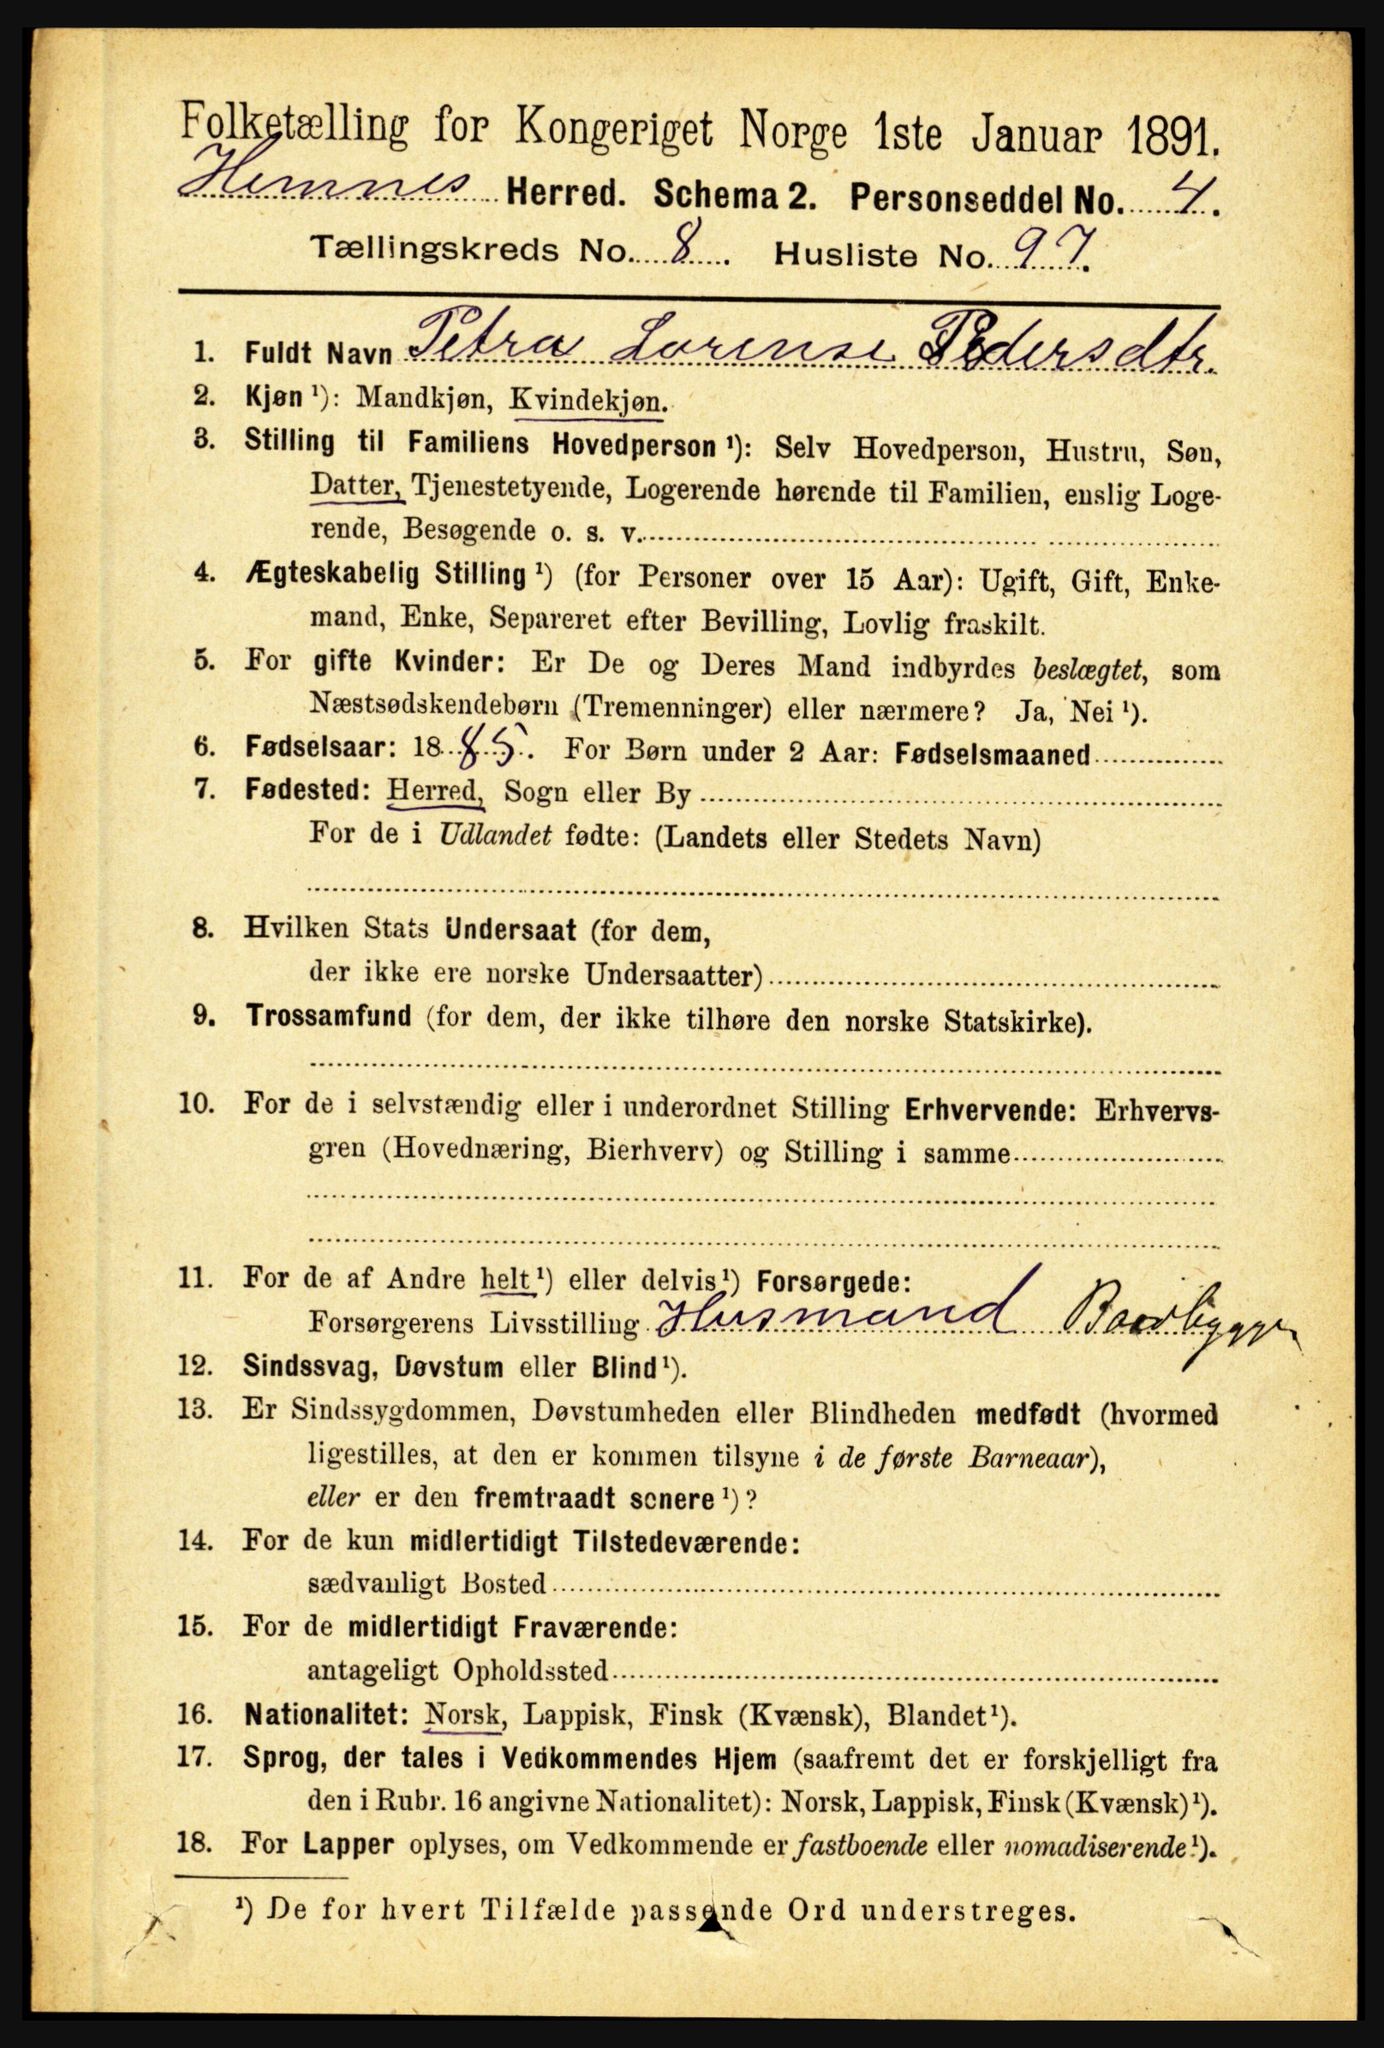 Folketælling for Kongeriget Norge 1ste Januar 1891.
Hemnes Herred. Schema 2. Personseddel No. 4.
Tællingskreds No. 8. Husliste No. 97.
1. Fuldt Navn Petra Lorense Pedersdtr.
2. Kjøn ¹): Mandkjøn, Kvindekjøn.
3. Stilling til Familiens Hovedperson ¹): Selv Hovedperson, Hustru, Søn,
Datter, Tjenestetyende, Logerende hørende til Familien, enslig Loge-
rende, Besøgende o. s. v.
4. Ægteskabelig Stilling ¹) (for Personer over 15 Aar): Ugift, Gift, Enke-
mand, Enke, Separeret efter Bevilling, Lovlig fraskilt.
5. For gifte Kvinder: Er De og Deres Mand indbyrdes beslægtet, som
Næstsødskendebørn (Tremenninger) eller nærmere? Ja, Nei ¹).
6. Fødselsaar: 1885. For Børn under 2 Aar: Fødselsmaaned
7. Fødested: Herred, Sogn eller By
For de i Udlandet fødte: (Landets eller Stedets Navn)
8. Hvilken Stats Undersaat (for dem,
der ikke ere norske Undersaatter)
9. Trossamfund (for dem, der ikke tilhøre den norske Statskirke).
10. For de i selvstændig eller i underordnet Stilling Erhvervende: Erhvervs-
gren (Hovednæring, Bierhverv) og Stilling i samme
11. For de af Andre helt ¹) eller delvis ¹) Forsørgede:
Forsørgerens Livsstilling Husmand Baadbygger
12. Sindssvag, Døvstum eller Blind ¹).
13. Er Sindssygdommen, Døvstumheden eller Blindheden medfødt (hvormed
ligestilles, at den er kommen tilsyne i de første Barneaar),
eller er den fremtraadt senere ¹)?
14. For de kun midlertidigt Tilstedeværende:
sædvanligt Bosted
15. For de midlertidigt Fraværende:
antageligt Opholdssted
16. Nationalitet: Norsk, Lappisk, Finsk (Kvænsk), Blandet ¹).
17. Sprog, der tales i Vedkommendes Hjem (saafremt det er forskjelligt fra
den i Rubr. 16 angivne Nationalitet): Norsk, Lappisk, Finsk (Kvænsk) ¹).
18. For Lapper oplyses, om Vedkommende er fastboende eller nomadiserende ¹).
¹) De for hvert Tilfælde passende Ord understreges.